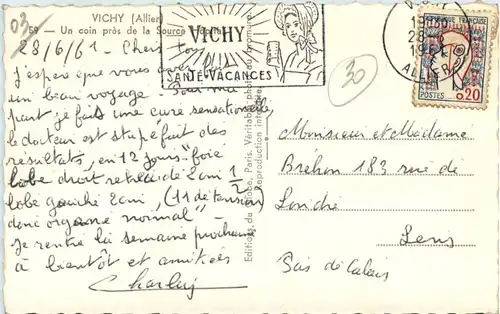 03
VICHY (Allier)
59 — Un coin près de la Source
28/6/61 - Chers tous
J'espère que vous avez
un beau voyage. Pour ma
part je fais une cure sensationnelle
le docteur est stupéfait des
résultats, en 12 jours "foie
lobe droit retrait de 2cm 1/2
lobe gauche 2cm, (11 de tension)
donc organe normal"
Je rentre la semaine prochaine
à bientôt et amitiés
Charley
Editions du Globe, Paris, Véritable photo au bromure
Reproduction interdite
VICHY
SANTÉ-VACANCES
30
VICHY
19H30
28-6
1961
ALLIER
REPUBLIQUE FRANÇAISE
POSTES 0,20
Monsieur et Madame
Brehon 183 rue de
Londres
Lens
Pas de Calais